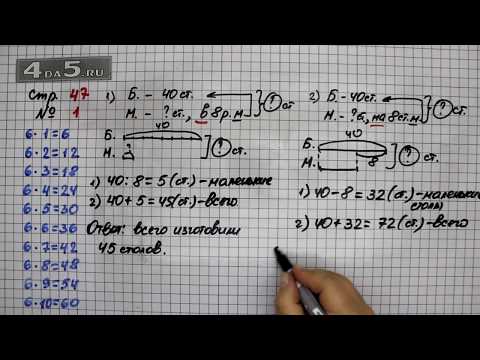 4DA5.RU
Стр. 47
№ 1
6·1=6
6·2=12
6·3=18
6·4=24
6·5=30
6·6=36
6·7=42
6·8=48
6·9=54
6·10=60
1) Б. - 40 ст.
М. - ? ст., в 8 р. м
? ст.
40
Б.
М. ?
? ст.
1) 40 : 8 = 5 (ст.) - маленькие
2) 40 + 5 = 45 (ст.) - всего
Ответ: всего изготовили
45 столов.
2) Б. - 40 ст.
М. - ? б, на 8 ст. м
? ст.
40
Б.
М.
8
? ст.
1) 40 - 8 = 32 (ст.) - маленькие
столы
2) 40 + 32 = 72 (ст.) - всего